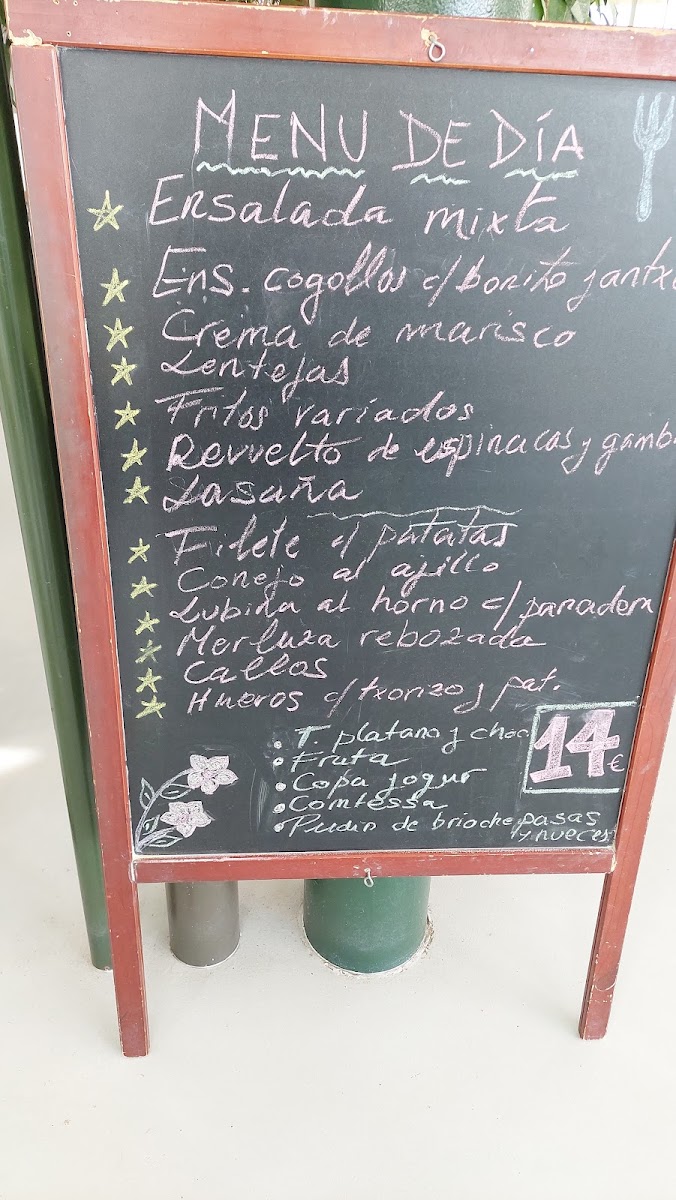 MENU DE DÍA
Ensalada mixta
Ens. cogollos c/bonito y antxo
Crema de marisco
Lentejas
Fritos variados
Revuelto de espinacas y gamb
Lasaña
Filete c/ patatas
Conejo al ajillo
Lubina al horno c/ panadera
Merluza rebozada
Callos
Huevos c/txorizo y pat.
T. platano y choc
Fruta
Copa yogur
Comtessa
Pudin de brioche pasas
y nueces
14€